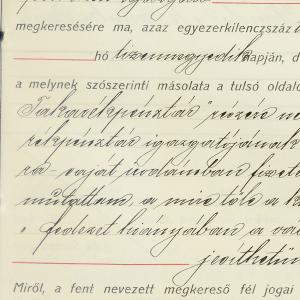 megkeresésére ma, azaz egyezerkilenczszáz
hó tizennegyedik napján, d
a melynek szószerinti másolata a tulsó oldalo
Takarékpénztár" részére
rékpénztár igazgatójának
ra saját irodámban fizeté
mutattam, a mire tőle a
fedezet hiányában a vá
jesithetün
Miről, a fent nevezett megkereső fél jogai